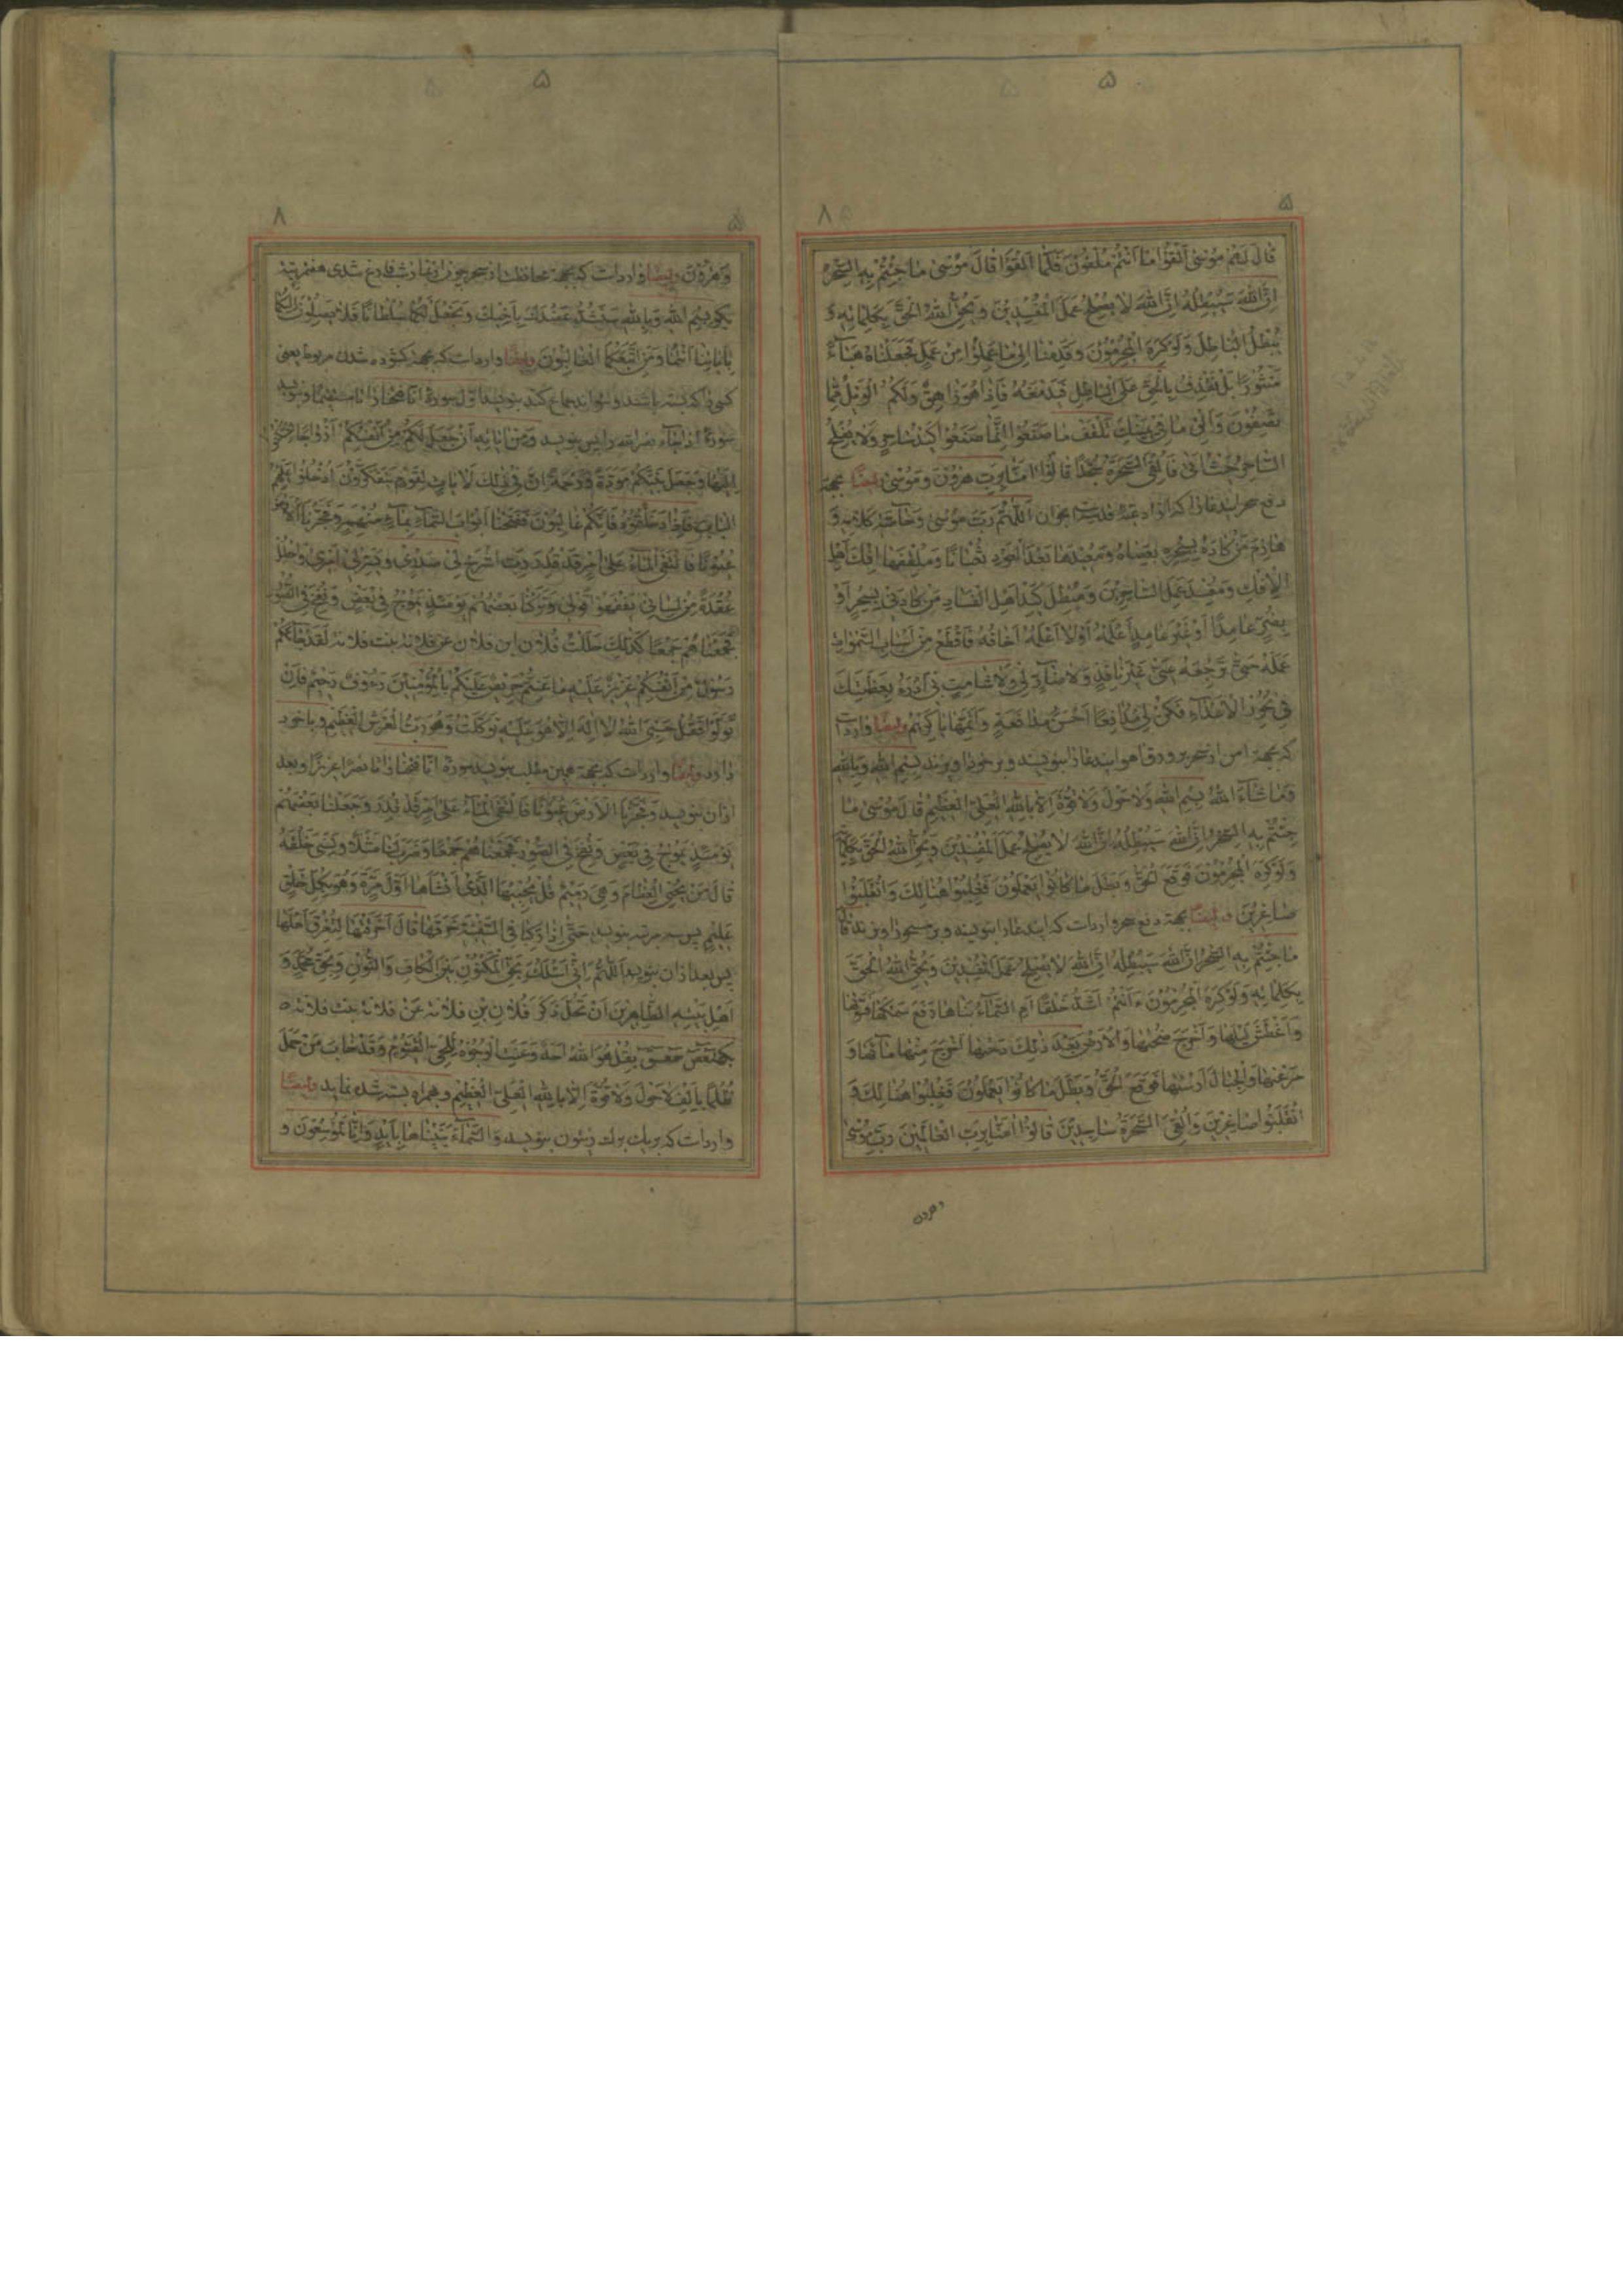 ۵
۵
۸
قَالَ لَهُمْ مُوسٰى اَلْقُوا مٰا اَنْتُمْ مُلْقُونَ فَلَمّٰا اَلْقَوْا قٰالَ مُوسٰى مٰا جِئْتُمْ بِهِ السِّحْرُ
اِنَّ اللّٰهَ سَيُبْطِلُهُ اِنَّ اللّٰهَ لاٰ يُصْلِحُ عَمَلَ الْمُفْسِدِينَ وَ يُحِقُّ اللّٰهُ الْحَقَّ بِكَلِمٰاتِهِ وَ
يُبْطِلُ الْبٰاطِلَ وَلَوْ كَرِهَ الْمُجْرِمُونَ وَ قَدِمْنٰا اِلىٰ مٰا عَمِلُوا مِنْ عَمَلٍ فَجَعَلْنٰاهُ هَبٰاءً
مَنْثُورًا بَلْ نَقْذِفُ بِالْحَقِّ عَلَى الْبٰاطِلِ فَيَدْمَغُهُ فَاِذٰا هُوَ زٰاهِقٌ وَلَكُمُ الْوَيْلُ مِمّٰا
تَصِفُونَ وَاَلْقِ مٰا فِي يَمِينِكَ تَلْقَفْ مٰا صَنَعُوا اِنَّمٰا صَنَعُوا كَيْدُ سٰاحِرٍ وَلاٰ يُفْلِحُ
السّٰاحِرُ حَيْثُ اَتىٰ فَاُلْقِيَ السَّحَرَةُ سُجَّدًا قٰالُوا اٰمَنّٰا بِرَبِّ هٰرُونَ وَ مُوسٰى ايضًا بجهة
دفع سحر ايندعا اللّٰهُمَّ رَبَّ مُوسٰى وَخٰاصَّهُ بِكَلاٰمِهِ وَ
هٰازِمَ مَنْ كٰادَهُ بِسِحْرِهِ بِعَصٰاهُ وَ مُعِيدَهٰا بَعْدَ الْعَوْدِ ثُعْبٰانًا وَ مُلْقِفَهٰا اِفْكَ اَهْلِ
الْاِفْكِ وَ مُفْسِدَ عَمَلِ السّٰاحِرِينَ وَ مُبْطِلَ كَيْدِ اَهْلِ الْفَسٰادِ مَنْ كٰادَنِي بِسِحْرٍ اَوْ
بِضُرٍّ عٰامِدًا اَوْ غَيْرَ عٰامِدٍ اَعْلَمُهُ اَوْ لاٰ اَعْلَمُهُ اَخٰافُهُ فَاقْطَعْ مِنْ اَسْبٰابِ السَّمٰوٰاتِ
عَمَلَهُ حَتّٰى تُرْجِعَهُ عَنّى غَيْرَ نٰافِذٍ وَلاٰ ضٰارٍّ لِي وَلاٰ شٰامِتٍ بِي اَدْرَءُ بِعَظَمَتِكَ
فِي نُحُورِ الْاَعْدٰاءِ فَكُنْ لِي مُدٰافِعًا اَحْسَنَ مُدٰافَعَةٍ وَ اَتَمَّهٰا يٰا كَرِيمُ و ايضًا وارداست
كه بجهة بِسْمِ اللّٰهِ وَ بِاللّٰهِ
وَ مٰا شٰاءَ اللّٰهُ بِسْمِ اللّٰهِ وَلاٰ حَوْلَ وَلاٰ قُوَّةَ اِلاّٰ بِاللّٰهِ الْعَلِيِّ الْعَظِيمِ قٰالَ مُوسٰى مٰا
جِئْتُمْ بِهِ السِّحْرُ اِنَّ اللّٰهَ سَيُبْطِلُهُ اِنَّ اللّٰهَ لاٰ يُصْلِحُ عَمَلَ الْمُفْسِدِينَ وَ يُحِقُّ اللّٰهُ الْحَقَّ بِكَلِمٰاتِهِ
وَلَوْ كَرِهَ الْمُجْرِمُونَ فَوَقَعَ الْحَقُّ وَ بَطَلَ مٰا كٰانُوا يَعْمَلُونَ فَغُلِبُوا هُنٰالِكَ وَ انْقَلَبُوا
صٰاغِرِينَ و ايضًا بجهة دفع سحر وارداست كه ايندعا را بنويسد
مٰا جِئْتُمْ بِهِ السِّحْرُ اِنَّ اللّٰهَ سَيُبْطِلُهُ اِنَّ اللّٰهَ لاٰ يُصْلِحُ عَمَلَ الْمُفْسِدِينَ وَ يُحِقُّ اللّٰهُ الْحَقَّ
بِكَلِمٰاتِهِ وَلَوْ كَرِهَ الْمُجْرِمُونَ ءَاَنْتُمْ اَشَدُّ خَلْقًا اَمِ السَّمٰاءُ بَنٰاهٰا رَفَعَ سَمْكَهٰا فَسَوّٰاهٰا
وَ اَغْطَشَ لَيْلَهٰا وَ اَخْرَجَ ضُحٰيهٰا وَ الْاَرْضَ بَعْدَ ذٰلِكَ دَحٰيهٰا اَخْرَجَ مِنْهٰا مٰاءَهٰا وَ
مَرْعٰيهٰا وَ الْجِبٰالَ اَرْسٰيهٰا فَوَقَعَ الْحَقُّ وَ بَطَلَ مٰا كٰانُوا يَعْمَلُونَ فَغُلِبُوا هُنٰالِكَ وَ
انْقَلَبُوا صٰاغِرِينَ وَ اُلْقِيَ السَّحَرَةُ سٰاجِدِينَ قٰالُوا اٰمَنّٰا بِرَبِّ الْعٰالَمِينَ رَبِّ مُوسٰى
وهرون
۵
۵
۸
وَ هٰرُونَ و ايضًا وارداست كه بجهة محافظت از سحر چون از نماز شب فارغ شدى هفت مرتبه
بگو بِسْمِ اللّٰهِ وَ بِاللّٰهِ سَنَشُدُّ عَضُدَكَ بِاَخِيكَ وَ نَجْعَلُ لَكُمٰا سُلْطٰانًا فَلاٰ يَصِلُونَ اِلَيْكُمٰا
بِاٰيٰاتِنٰا اَنْتُمٰا وَ مَنِ اتَّبَعَكُمَا الْغٰالِبُونَ و ايضًا وارداست كه بجهة گشوده شدن مربوط يعنى
كسى را كه بسته باشند و نتواند جماع كند بنويسد اول سورهٔ انا فتحنا را تا مستقيما و بنويسد
سورهٔ اذا جاء نصر الله و اين بنويسد وَ مِنْ اٰيٰاتِهِ اَنْ جَعَلَ لَكُمْ مِنْ اَنْفُسِكُمْ اَزْوٰاجًا لِتَسْكُنُوا
اِلَيْهٰا وَ جَعَلَ بَيْنَكُمْ مَوَدَّةً وَ رَحْمَةً اِنَّ فِي ذٰلِكَ لَاٰيٰاتٍ لِقَوْمٍ يَتَفَكَّرُونَ اُدْخُلُوا عَلَيْهِمُ
الْبٰابَ فَاِذٰا دَخَلْتُمُوهُ فَاِنَّكُمْ غٰالِبُونَ فَفَتَحْنٰا اَبْوٰابَ السَّمٰاءِ بِمٰاءٍ مُنْهَمِرٍ وَ فَجَّرْنَا الْاَرْضَ
عُيُونًا فَالْتَقَى الْمٰاءُ عَلىٰ اَمْرٍ قَدْ قُدِرَ رَبِّ اشْرَحْ لِي صَدْرِي وَ يَسِّرْ لِي اَمْرِي وَ احْلُلْ
عُقْدَةً مِنْ لِسٰانِي يَفْقَهُوا قَوْلِي وَ تَرَكْنٰا بَعْضَهُمْ يَوْمَئِذٍ يَمُوجُ فِي بَعْضٍ وَ نُفِخَ فِي الصُّورِ
فَجَمَعْنٰاهُمْ جَمْعًا كَذٰلِكَ حَلَلْتُ فُلاٰن بن فلان عن فلانه بنت فلانه لَقَدْ جٰاءَكُمْ
رَسُولٌ مِنْ اَنْفُسِكُمْ عَزِيزٌ عَلَيْهِ مٰا عَنِتُّمْ حَرِيصٌ عَلَيْكُمْ بِالْمُؤْمِنِينَ رَءُوفٌ رَحِيمٌ فَاِنْ
تَوَلَّوْا فَقُلْ حَسْبِيَ اللّٰهُ لاٰ اِلٰهَ اِلاّٰ هُوَ عَلَيْهِ تَوَكَّلْتُ وَ هُوَ رَبُّ الْعَرْشِ الْعَظِيمِ و با خود
دارد و ايضًا وارداست كه بجهة همين مطلب بنويسد سورهٔ انا فتحنا را تا نصرا عزيزا و بعد
ازان بنويسد وَ فَجَّرْنَا الْاَرْضَ عُيُونًا فَالْتَقَى الْمٰاءُ عَلىٰ اَمْرٍ قَدْ قُدِرَ وَ جَعَلْنٰا بَعْضَهُمْ
يَوْمَئِذٍ يَمُوجُ فِي بَعْضٍ وَ نُفِخَ فِي الصُّورِ فَجَمَعْنٰاهُمْ جَمْعًا وَ ضَرَبَ لَنٰا مَثَلًا وَ نَسِيَ خَلْقَهُ
قٰالَ مَنْ يُحْيِي الْعِظٰامَ وَ هِيَ رَمِيمٌ قُلْ يُحْيِيهَا الَّذِي اَنْشَأَهٰا اَوَّلَ مَرَّةٍ وَ هُوَ بِكُلِّ خَلْقٍ
عَلِيمٌ پس سه مرتبه بنويسد حَتّٰى اِذٰا رَكِبٰا فِي السَّفِينَةِ خَرَقَهٰا قٰالَ اَخَرَقْتَهٰا لِتُغْرِقَ اَهْلَهٰا
پس بعد ازان بنويسد اَللّٰهُمَّ اِنِّي اَسْئَلُكَ بِحَقِّ الْمَكْنُونِ بَيْنَ الْكٰافِ وَ النُّونِ وَ بِحَقِّ مُحَمَّدٍ وَ
اَهْلِ بَيْتِهِ الطّٰاهِرِينَ اَنْ تَحُلَّ ذَكَرَ فُلاٰنِ بْنِ فلانه عَنْ فلانه بنت فلانه
كهيعص حمعسق بِقُلْ هُوَ اللّٰهُ اَحَدٌ وَ عَنَتِ الْوُجُوهُ لِلْحَيِّ الْقَيُّومِ وَ قَدْ خٰابَ مَنْ حَمَلَ
ظُلْمًا بِاَلْفِ لاٰ حَوْلَ وَلاٰ قُوَّةَ اِلاّٰ بِاللّٰهِ الْعَلِيِّ الْعَظِيمِ و همراه بسته شده نمايد و ايضًا
وارداست كه بر يك برك زيتون بنويسد وَ السَّمٰاءَ بَنَيْنٰاهٰا بِاَيْدٍ وَ اِنّٰا لَمُوسِعُونَ وَ